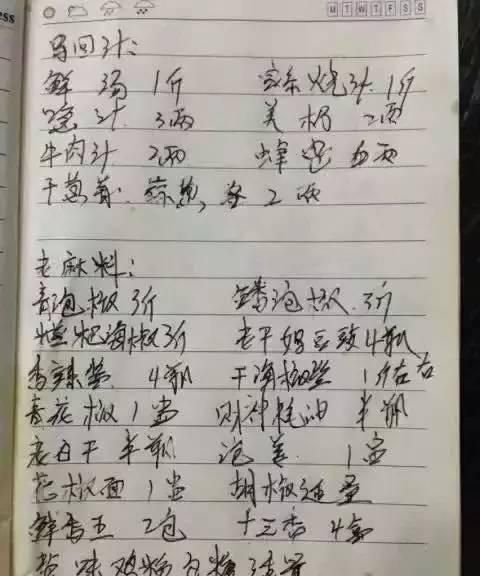 ess
M T W T F S S
汁:
鲜汤 1斤 烧汁 1斤
汁 3两 美极 2两
牛肉汁 2两 蜂蜜 5两
干葱 2两
老麻料:
青泡椒 3斤 泡椒 3斤
糍粑海椒3斤 老干妈豆豉4瓶
香辣酱 4瓶 干海椒 1斤左右
青花椒 1 财神耗油 半瓶
泡姜 1
花椒面 1 胡椒适量
鲜香王 2包 十三香 4盒
盐 味 鸡粉 白糖 适量